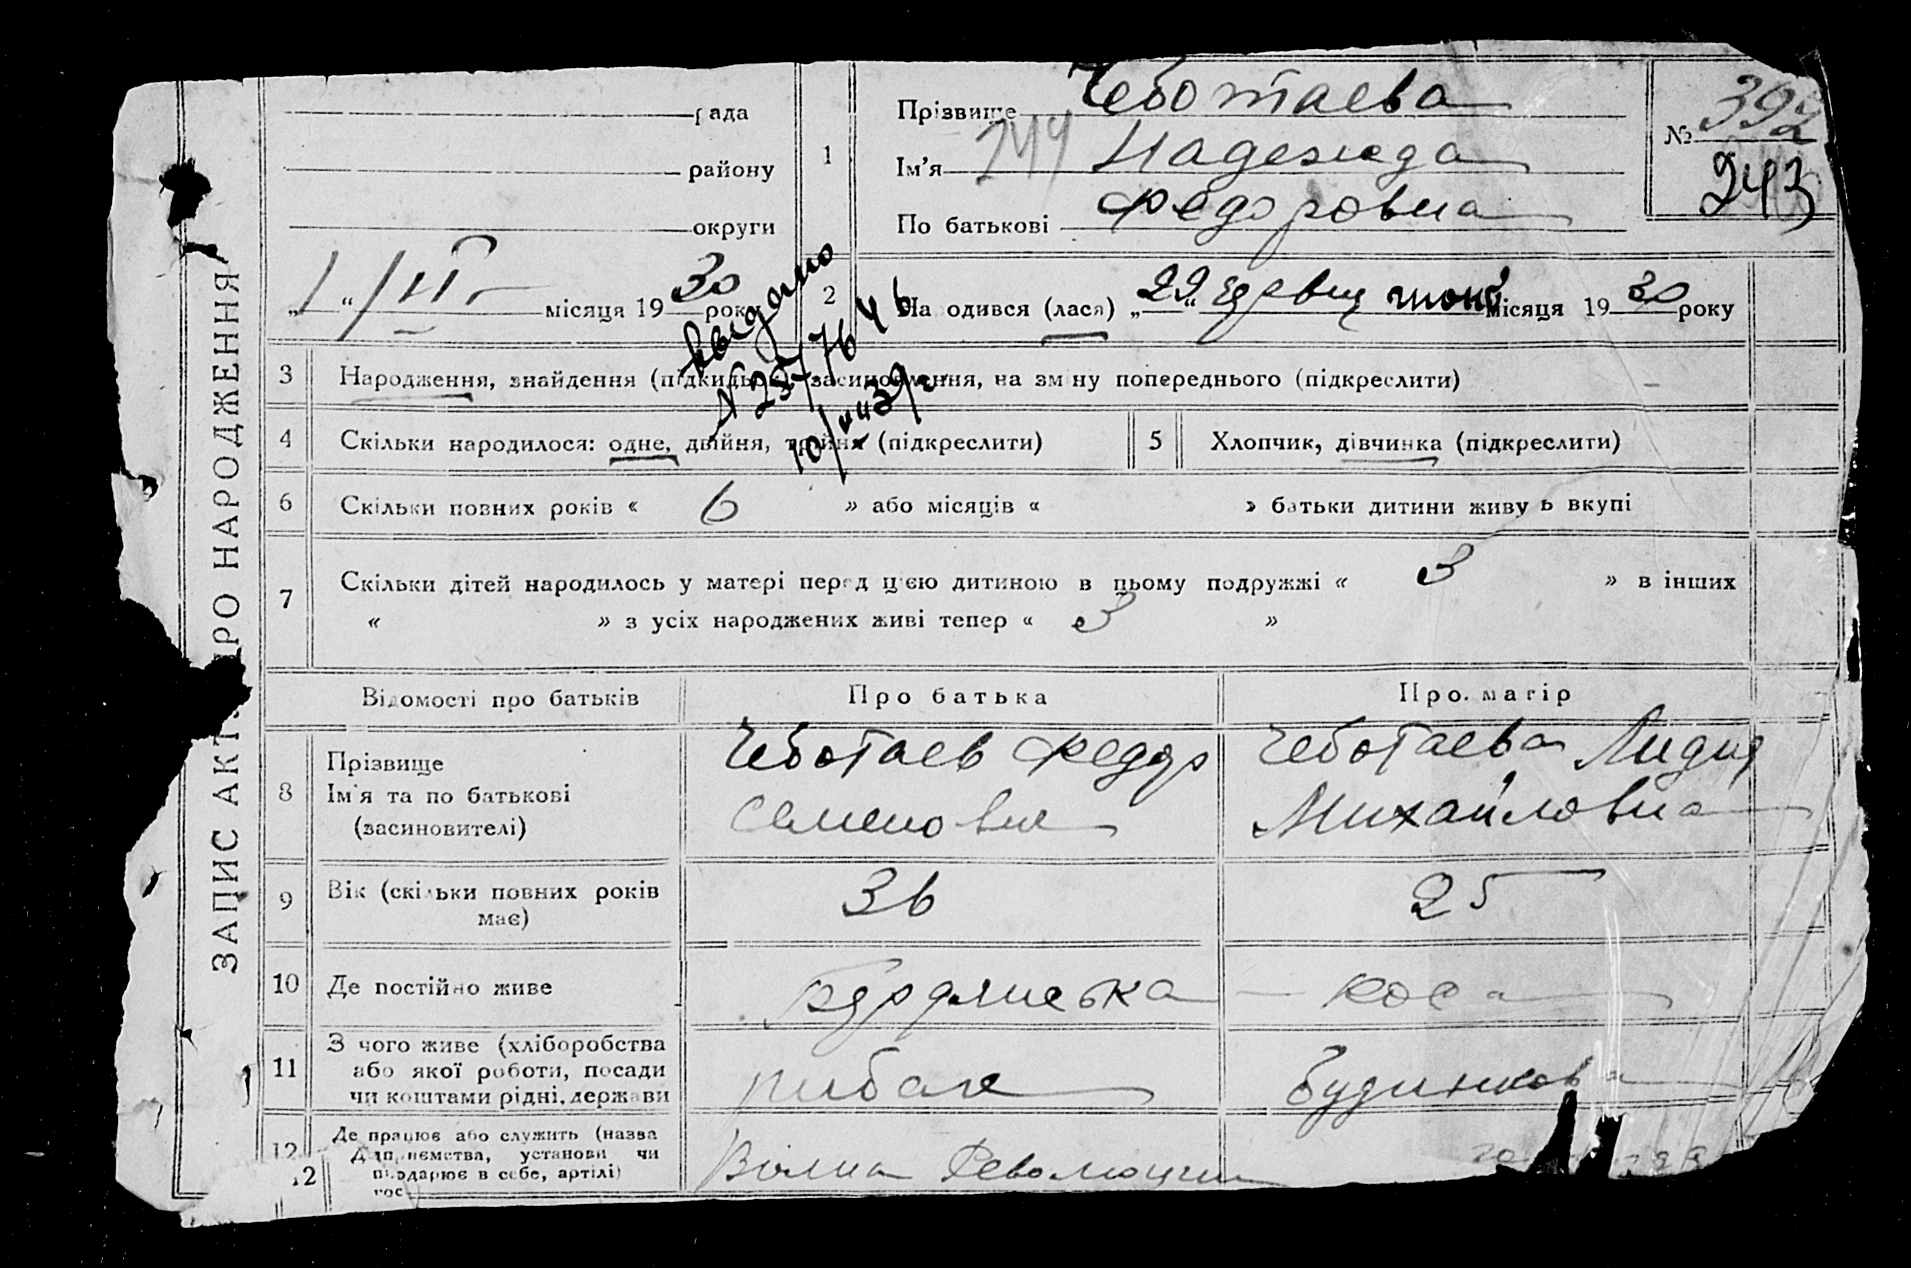 ЗАПИС АКТ ПРО НАРОДЖЕННЯ
рада
району
округи
1
Прізвище Чеботаева
Ім'я 244 Надежда
По батькові Федоровна
№ 392
243
„1“ / III місяця 1930 року
2
На одився (лася) „29“ місяця 1930 року
выдано
N 257764
3 Народження, знайдення (підкидька), засиновлення, на зміну попереднього (підкреслити)
4 Скільки народилося: одне, двійня, трійня (підкреслити)
5 Хлопчик, дівчинка (підкреслити)
6 Скільки повних років « 6 » або місяців « » батьки дитини живу ь вкупі
7 Скільки дітей народилось у матері перед цією дитиною в цьому подружжі « 3 » в інших
« » з усіх народжених живі тепер « 3 »
Відомості про батьків
Про батька
Про матір
8 Прізвище
Ім'я та по батькові
(засиновителі)
Чеботаев Федор
Семенович
Чеботаева Лидия
Михайловна
9 Вік (скільки повних років
має)
36
25
10 Де постійно живе
Бердянська коса
11 З чого живе (хліборобства
або якої роботи, посади
чи коштами рідні, держави
рибак
12 Де працює або служить (назва
підприємства, установи чи
господарює в себе, артілі)
12
гос
Вільна Революция